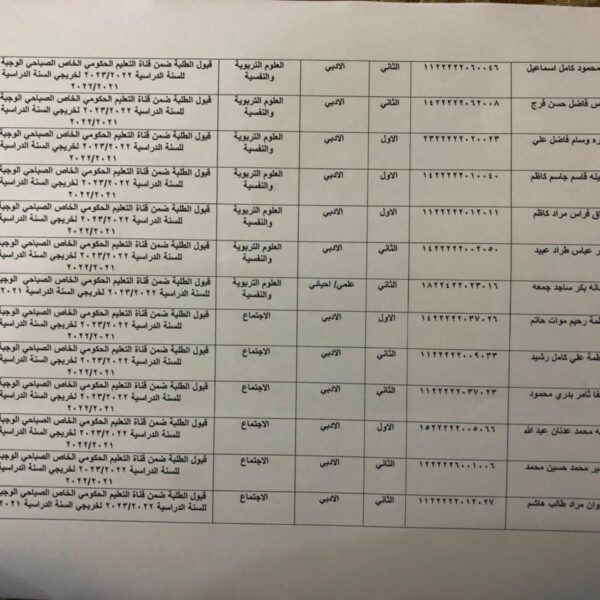 محمود كامل اسماعيل ١١٢٢٢٢٢٠٦٠٠٤٦ الثاني الادبي العلوم التربوية والنفسية قبول الطلبة ضمن قناة التعليم الحكومي الخاص الصباحي الوجبة
للسنة الدراسية ٢٠٢٣/٢٠٢٢ لخريجي السنة الدراسية
٢٠٢٢/٢٠٢١
س فاضل حسن فرج ١٤٢٢٢٢٢٠٦٢٠٠٨ الثاني الادبي العلوم التربوية والنفسية قبول الطلبة ضمن قناة التعليم الحكومي الخاص الصباحي الوجبة
للسنة الدراسية ٢٠٢٣/٢٠٢٢ لخريجي السنة الدراسية
٢٠٢٢/٢٠٢١
ره وسام فاضل علي ٢٣٢٢٢٢٢٠٢٠٠٢٣ الاول الادبي العلوم التربوية والنفسية قبول الطلبة ضمن قناة التعليم الحكومي الخاص الصباحي الوجبة
للسنة الدراسية ٢٠٢٣/٢٠٢٢ لخريجي السنة الدراسية
٢٠٢٢/٢٠٢١
يله قاسم جاسم كاظم ١٤٢٢٢٢٢٠١٠٠٤٠ الاول الادبي العلوم التربوية والنفسية قبول الطلبة ضمن قناة التعليم الحكومي الخاص الصباحي الوجبة
للسنة الدراسية ٢٠٢٣/٢٠٢٢ لخريجي السنة الدراسية
٢٠٢٢/٢٠٢١
ق فراس مراد كاظم ١١٢٢٢٢٢٠١٢٠١١ الاول الادبي العلوم التربوية والنفسية قبول الطلبة ضمن قناة التعليم الحكومي الخاص الصباحي الوجبة
للسنة الدراسية ٢٠٢٣/٢٠٢٢ لخريجي السنة الدراسية
٢٠٢٢/٢٠٢١
ر عباس طراد عبيد ١٤٢٢٢٢٢٠٠٢٠٥٠ الثاني الادبي العلوم التربوية والنفسية قبول الطلبة ضمن قناة التعليم الحكومي الخاص الصباحي الوجبة
للسنة الدراسية ٢٠٢٣/٢٠٢٢ لخريجي السنة الدراسية
٢٠٢٢/٢٠٢١
انه بكر ساجد جمعه ١٨٢٢٤٢٢٠٢٣٠١٦ الثاني علمي/ احيائي العلوم التربوية والنفسية قبول الطلبة ضمن قناة التعليم الحكومي الخاص الصباحي الوجبة
للسنة الدراسية ٢٠٢٣/٢٠٢٢ لخريجي السنة الدراسية ٢٠٢١
طمة رحيم موات حاتم ١٤٢٢٢٢٢٠٣٧٠٢٦ الاول الادبي الاجتماع قبول الطلبة ضمن قناة التعليم الحكومي الخاص الصباحي الوجبة
للسنة الدراسية ٢٠٢٣/٢٠٢٢ لخريجي السنة الدراسية
٢٠٢٢/٢٠٢١
طمة علي كامل رشيد ١١٢٢٢٢٢٠٠٩٠٣٣ الثاني الادبي الاجتماع قبول الطلبة ضمن قناة التعليم الحكومي الخاص الصباحي الوجبة
للسنة الدراسية ٢٠٢٣/٢٠٢٢ لخريجي السنة الدراسية
٢٠٢٢/٢٠٢١
فا ثامر بدري محمود ١١٢٢٢٢٢٠٣٧٠٢٣ الثاني الادبي الاجتماع قبول الطلبة ضمن قناة التعليم الحكومي الخاص الصباحي الوجبة
للسنة الدراسية ٢٠٢٣/٢٠٢٢ لخريجي السنة الدراسية
٢٠٢٢/٢٠٢١
ه محمد عدنان عبد الله ١٥٢٢٢٢٢٠٠٥٠٦٦ الاول الادبي الاجتماع قبول الطلبة ضمن قناة التعليم الحكومي الخاص الصباحي الوجبة
للسنة الدراسية ٢٠٢٣/٢٠٢٢ لخريجي السنة الدراسية
٢٠٢٢/٢٠٢١
ير محمد حسين محمد ١١٢٢٢٢٦٠٠١٠٠٦ الثاني الادبي الاجتماع قبول الطلبة ضمن قناة التعليم الحكومي الخاص الصباحي الوجبة
للسنة الدراسية ٢٠٢٣/٢٠٢٢ لخريجي السنة الدراسية
٢٠٢٢/٢٠٢١
وان مراد طالب هاشم ١١٢٢٢٢٢٠١٢٠٢٧ الثاني الادبي الاجتماع قبول الطلبة ضمن قناة التعليم الحكومي الخاص الصباحي الوجبة
للسنة الدراسية ٢٠٢٣/٢٠٢٢ لخريجي السنة الدراسية ٢٠٢١